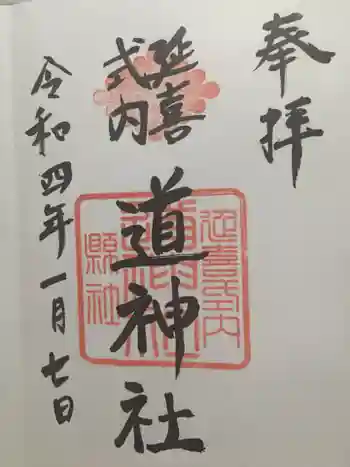 奉拝
延喜
式内
道神社
延喜式内
道神社
縣社
令和四年一月七日